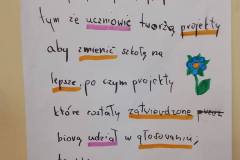 tym że uczniowie tworzą projekty
aby zmienić szkołę na
lepsze, po czym projekty
które zostały zatwierdzone
biorą udział w głosowaniu;